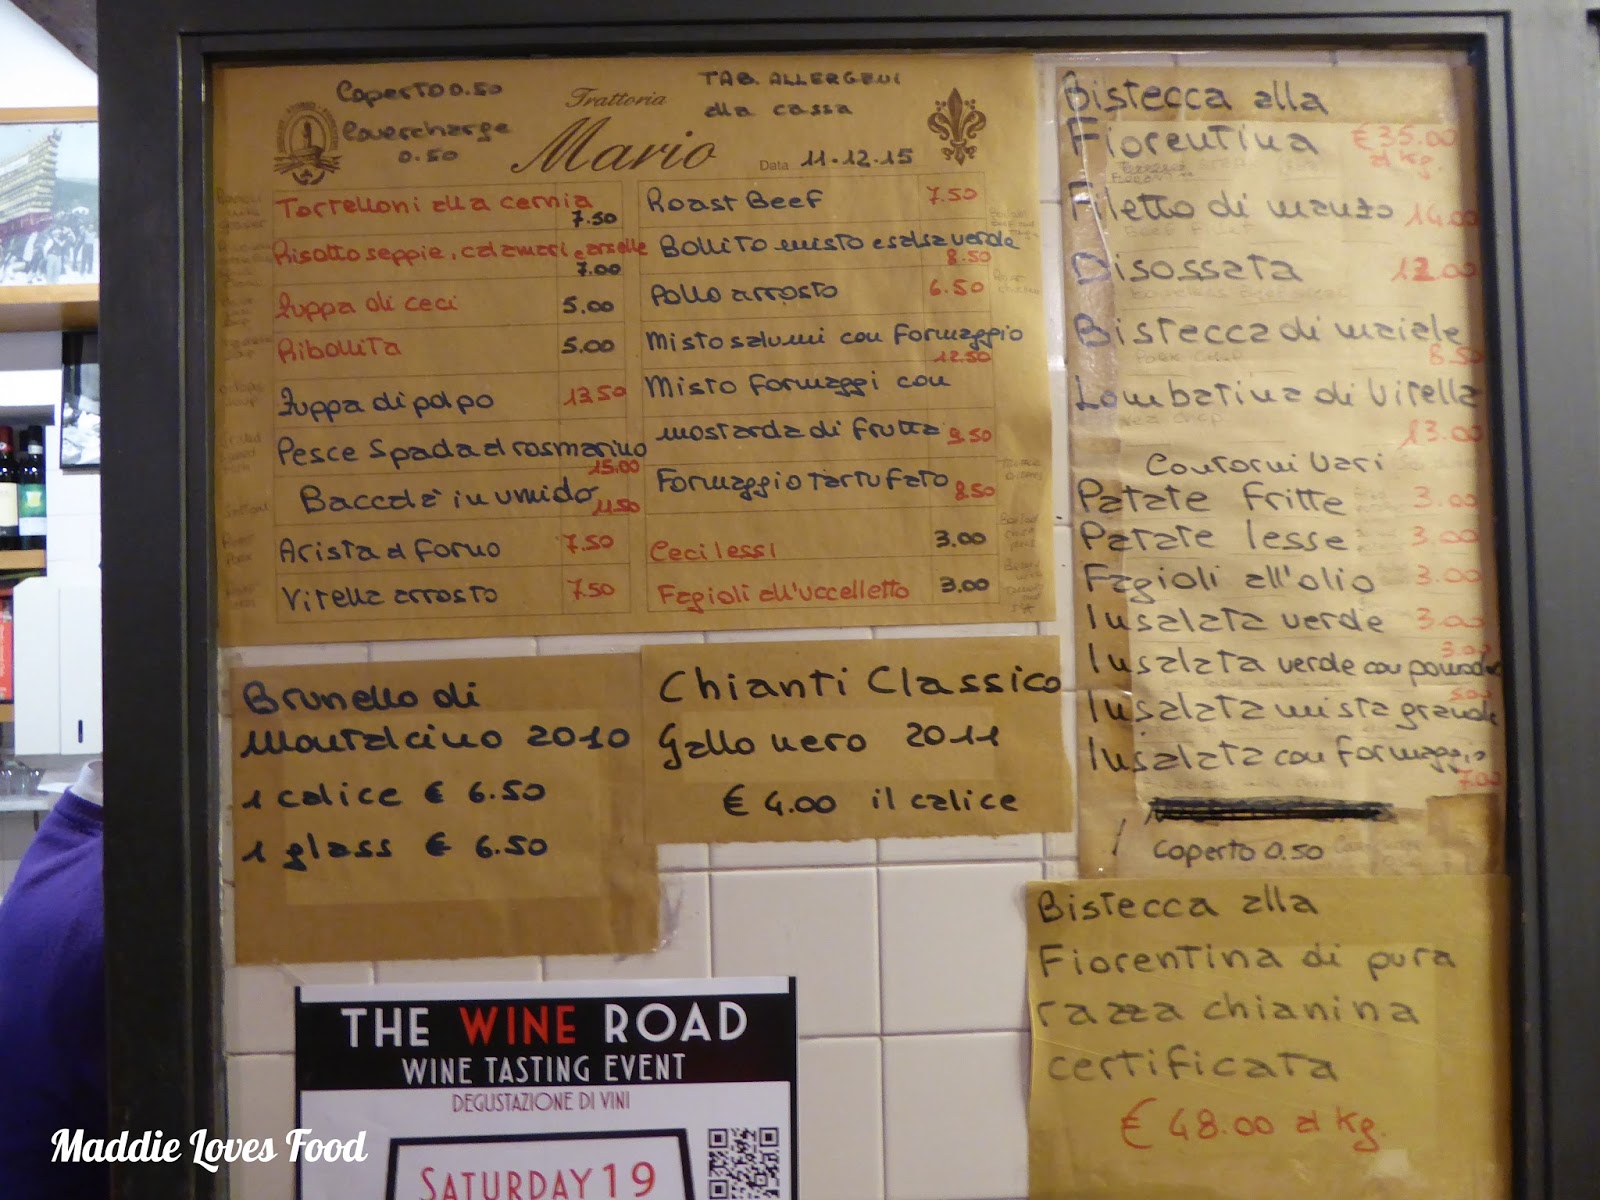 Coperto 0.50
Covercharge
0.50
Trattoria
Mario
TAB. ALLERGENI
alla cassa
Data 11.12.15
Tortelloni alla cernia
7.50
Risotto seppie, calamari e arselle
7.00
Zuppa di ceci 5.00
Ribollita 5.00
Zuppa di polpo 13.50
Pesce Spada al rosmarino
15.00
Baccalà in umido
11.50
Arista al forno 7.50
Vitella arrosto 7.50
Roast Beef 7.50
Bollito misto e salsa verde
8.50
Pollo arrosto 6.50
Misto salumi con formaggio
12.50
Misto formaggi con
mostarda di frutta 9.50
Formaggio tartufato 8.50
Ceci lessi 3.00
Fagioli all'uccelletto 3.00
Bistecca alla
Fiorentina € 35.00
al kg.
Filetto di manzo 14.00
Beef Filet
Bisossata 12.00
Bistecca di maiale
8.50
Lombatina di Vitella
13.00
Contorni Vari
Patate fritte 3.00
Patate lesse 3.00
Fagioli all'olio 3.00
Insalata verde 3.00
3.00
Insalata verde con pomodori
5.00
Insalata mista grande
Insalata con formaggio
7.00
Coperto 0.50
Brunello di
Montalcino 2010
1 calice € 6.50
1 glass € 6.50
Chianti Classico
Gallo nero 2011
€ 4.00 il calice
Bistecca alla
Fiorentina di pura
razza chianina
certificata
€ 48.00 al kg.
THE WINE ROAD
WINE TASTING EVENT
DEGUSTAZIONE DI VINI
SATURDAY 19
Maddie Loves Food